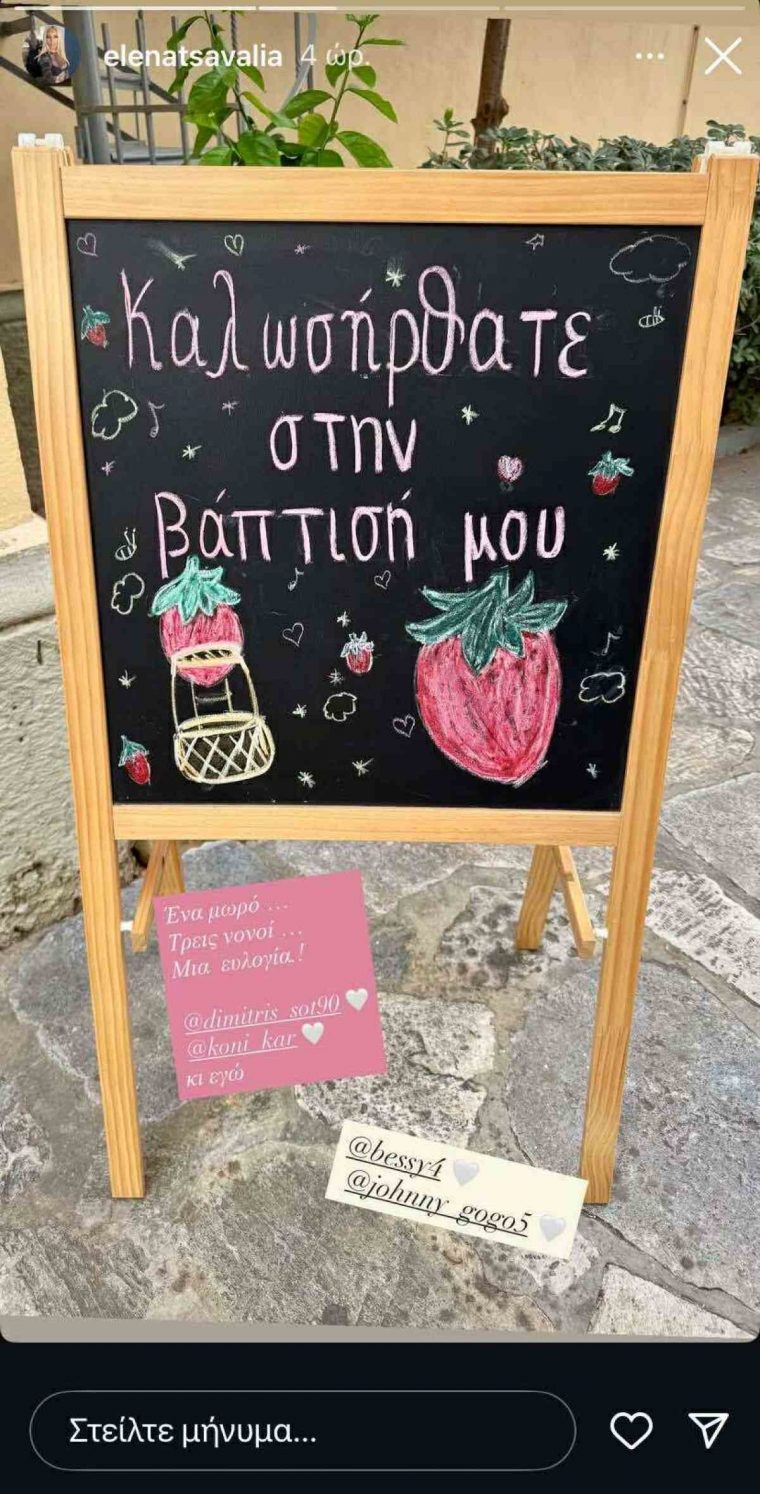 elenatsavalia 4 ώρ.
Καλωσήρθατε
στην
βάπτισή μου
Ένα μωρό ...
Τρεις νονοί ...
Μια ευλογία.!
@dimitris_sot90
@koni_kar
κι εγώ
@bessy4
@johnny_gogo5
Στείλτε μήνυμα...